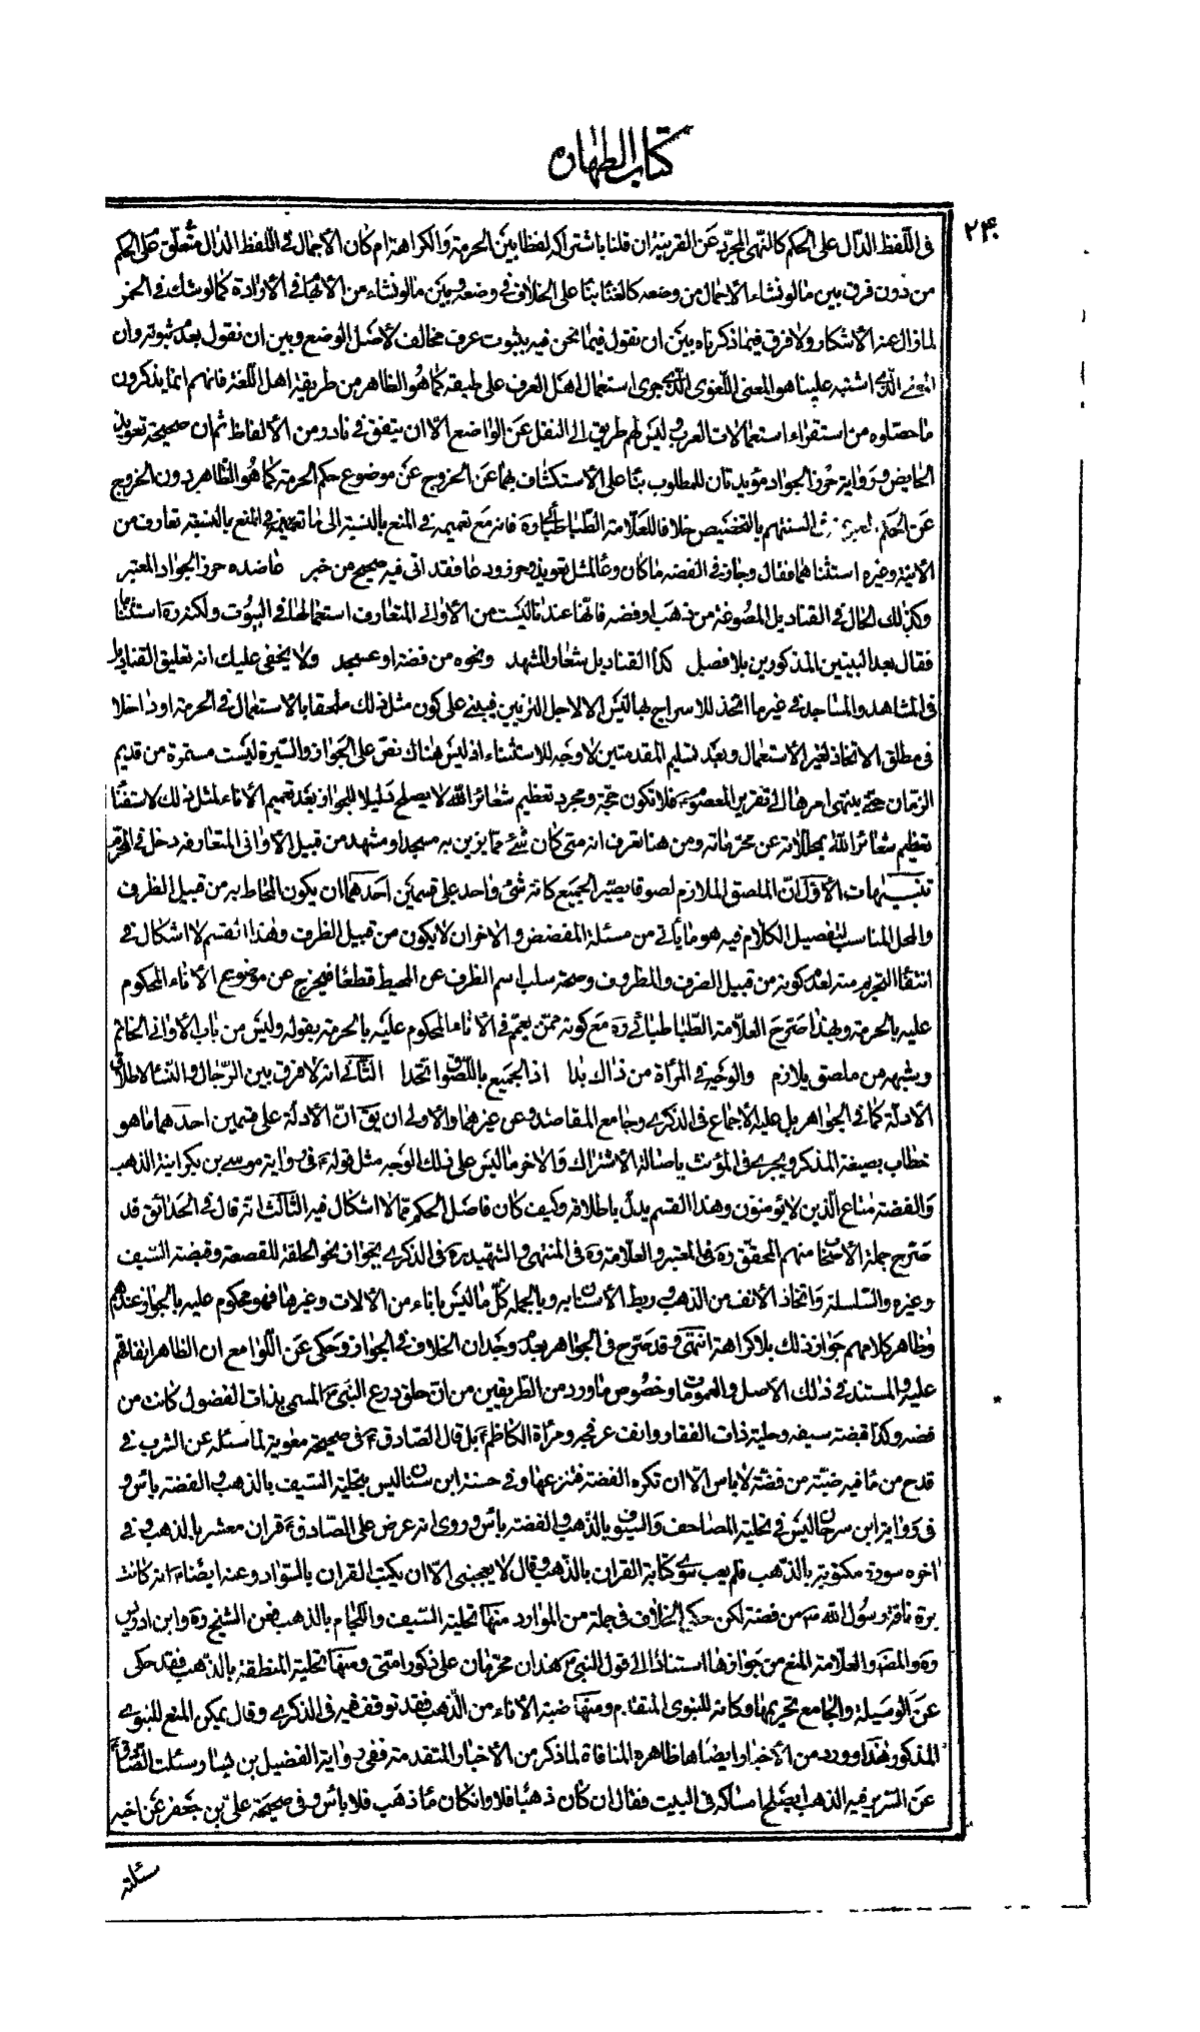 كتاب الطهارة
٢٤٠
في اللفظ الدال على الحكم كالنهى المجرد عن القرينة ان قلنا باشتراكه لفظا بين الحرمة والكراهة ام كان الأجمال في اللفظ الدال متعلق على الحكم
من دون فرق بين ما لو نشاء الأجمال من وضعه كالغنا بنا على الخلاف في وضعه وبين ما لو نشاء من الأبهام في الأرادة كما لو شك في الخمر
لما زال عنه الأسكار ولا فرق فيما ذكرناه بين ان نقول فيما نحن فيه بثبوت عرف مخالف لأصل الوضع وبين ان نقول بعد ثبوته وان
الذى اشتبه علينا هو المعنى اللغوى الذى جرى استعمال اهل العرف على طبقه كما هو الظاهر من طريقة اهل اللغة فانهم انما يذكرون
ما حصلوه من استقراء استعمالات العرب وليس لهم طريق الى النقل عن الواضع الا ان يتفق في نادر من الألفاظ ثم ان صحيحة تعويذ
الحايض ورواية حرز الجواد مؤيدتان للمطلوب بنا على الأستكشاف بهما عن الخروج عن موضوع حكم الحرمة كما هو الظاهر دون الخروج
عن الحكم السنتهم بالتخصيص خلافا للعلامة الطباطبائى ره فانه مع تعميمه في المنع بالنسبة الى ما تعميمه في المنع بالنسبة تعارف من
الانية وغيره استثناهما فقال وجاز في الفضه ما كان وعا لمثل تعويذ وحرز ودعا فقد اتى فيه صحيح من خبر عاضده حرز الجواد المعتبر
وكذلك الحال في القناديل المصوغة من ذهب او فضه فانها عندنا ليست من الأوانى المتعارف استعمالها في البيوت ولكنه ره استثناها
فقال بعد البيتين المذكورين بلا فصل كذا القناديل شعار المشهد ونحوه من فضة او عسجد ولا يخفى عليك انه تعليق القناديل
في المشاهد والمساجد في غير ما اتخذ للاسراج بها ليس الا لاجل التزيين فيبنى على كون مثل ذلك ملحقا بالاستعمال في الحرمة او داخلا
في مطلق الاتخاذ لغير الاستعمال وبعد تسليم المقدمتين لا وجه للاستثناء اذ ليس هناك نص على الجواز والسيرة ليست مستمرة من قديم
الزمان حتى ينتهى امرها الى تقرير المعصوم ع فلا تكون حجة ومجرد تعظيم شعائر الله لا يصلح دليلا للجواز بعد تعميم الاناء لمثل ذلك لاستغناء
تعظيم شعائر الله بمحللاته عن محرماته ومن هنا تعرف انه متى كان شئ مما يزين به مسجد او مشهد من قبيل الأوانى المتعارفه دخل في المحرم
تنبيهات الأول ان الملصق الملازم لصوقا يصير الجميع كانه شئ واحد على قسمين احدهما ان يكون المحاط به من قبيل الظرف
والمحل المناسب لتفصيل الكلام فيه هو ما يأتى من مسئلة المفضض والاخر ان لا يكون من قبيل الظرف وهذا القسم لا اشكال في
انتفاء التحريم منه لعدم كونه من قبيل الظرف والمظروف وصحة سلب اسم الظرف عن المحيط قطعا فيخرج عن موضوع الأناء المحكوم
عليه بالحرمة وبهذا صرح العلامة الطباطبائى ره مع كونه ممن يعمم في الأناء المحكوم عليه بالحرمة بقوله وليس من باب الأوانى الخاتم
وشبهه من ملصق يلازم والوجه في المرأة من ذاك بدا اذ الجميع باللصوق اتحدا الثانى انه لا فرق بين الرجال والنساء لاطلاق
الأدلة كما في الجواهر بل عليه الأجماع في الذكرى وجامع المقاصد وعن غيرهما والأولى ان يق ان الأدلة على قسمين احدهما ما هو
خطاب بصيغة المذكر ويجرى في المؤنث باصالة الأشتراك والاخر ما ليس على ذلك الوجه مثل قوله ع في رواية موسى بن بكر انية الذهب
والفضة متاع الذين لا يوقنون وهذا القسم يدل باطلاقه وكيف كان فاصل الحكم مما لا اشكال فيه الثالث انه قال في الحدائق قد
صرح جملة الأصحاب منهم المحقق ره في المعتبر والعلامة ره في المنتهى والشهيد ره في الذكرى بجواز نحو الحلقة للقصعة وقبضة السيف
وغيره والسلسلة واتخاذ الأنف من الذهب وربط الأسنان به وبالجملة كل ما ليس باناء من الالات وغيرها فهو محكوم عليه بالجواز عندهم
وظاهر كلامهم جواز ذلك بلا كراهة انتهى وقد صرح في الجواهر بعدم وجدان الخلاف في الجواز وحكى عن اللوامع ان الظاهر اتفاقهم
عليه والمستند في ذلك الأصل والعمومات وخصوص ما ورد من الطريقين من ان حلق درع النبى ص المسمى بذات الفضول كانت من
فضه وكذا قبضة سيفه وحلية ذات الفقار وانف عرفجه ومرأة الكاظم ع بل قال الصادق ع في صحيحة معوية لما سئله عن الشرب في
قدح من ما فيه ضبة من فضة لا باس الا ان تكره الفضة فتنزعها وفي حسنة ابن سنان ليس بتحلية السيف بالذهب والفضه باس و
في رواية ابن سرحان ليس في تحلية المصاحف والسيوف بالذهب والفضه بأس وروى انه عرض على الصادق ع قران معشر بالذهب وفي
اخره سورة مكتوبة بالذهب فلم يعب سوى كتابة القران بالذهب وقال لا يعجبنى الا ان يكتب القران بالسواد وعنه ايضا ع انه كانت
برة ناقة رسول الله ص من فضة لكن حكى الخلاف في جملة من الموارد منها تحلية السيف واللجام بالذهب فعن الشيخ ره وابن ادريس
ره والمص والعلامة المنع من جوازها استنادا الى قول النبى ص هذان محرمان على ذكور امتى ومنها تحلية المنطقة بالذهب فقد حكى
عن الوسيلة والجامع تحريمها وكانه للنبوى المتقدم ومنها ضبة الأناء من الذهب فقد توقف فيه في الذكرى وقال يمكن المنع للنبوى
المذكور هذا وورد من الأخبار ايضا ما ظاهره المنافاة لما ذكر من الأخبار المتقدمة ففى رواية الفضيل بن يسار سئلت الصادق ع
عن السرير فيه الذهب ايصلح امساكه في البيت فقال ان كان ذهبا فلا وان كان ماء ذهب فلا بأس وفي صحيحة على بن جعفر عن اخيه
سئلته